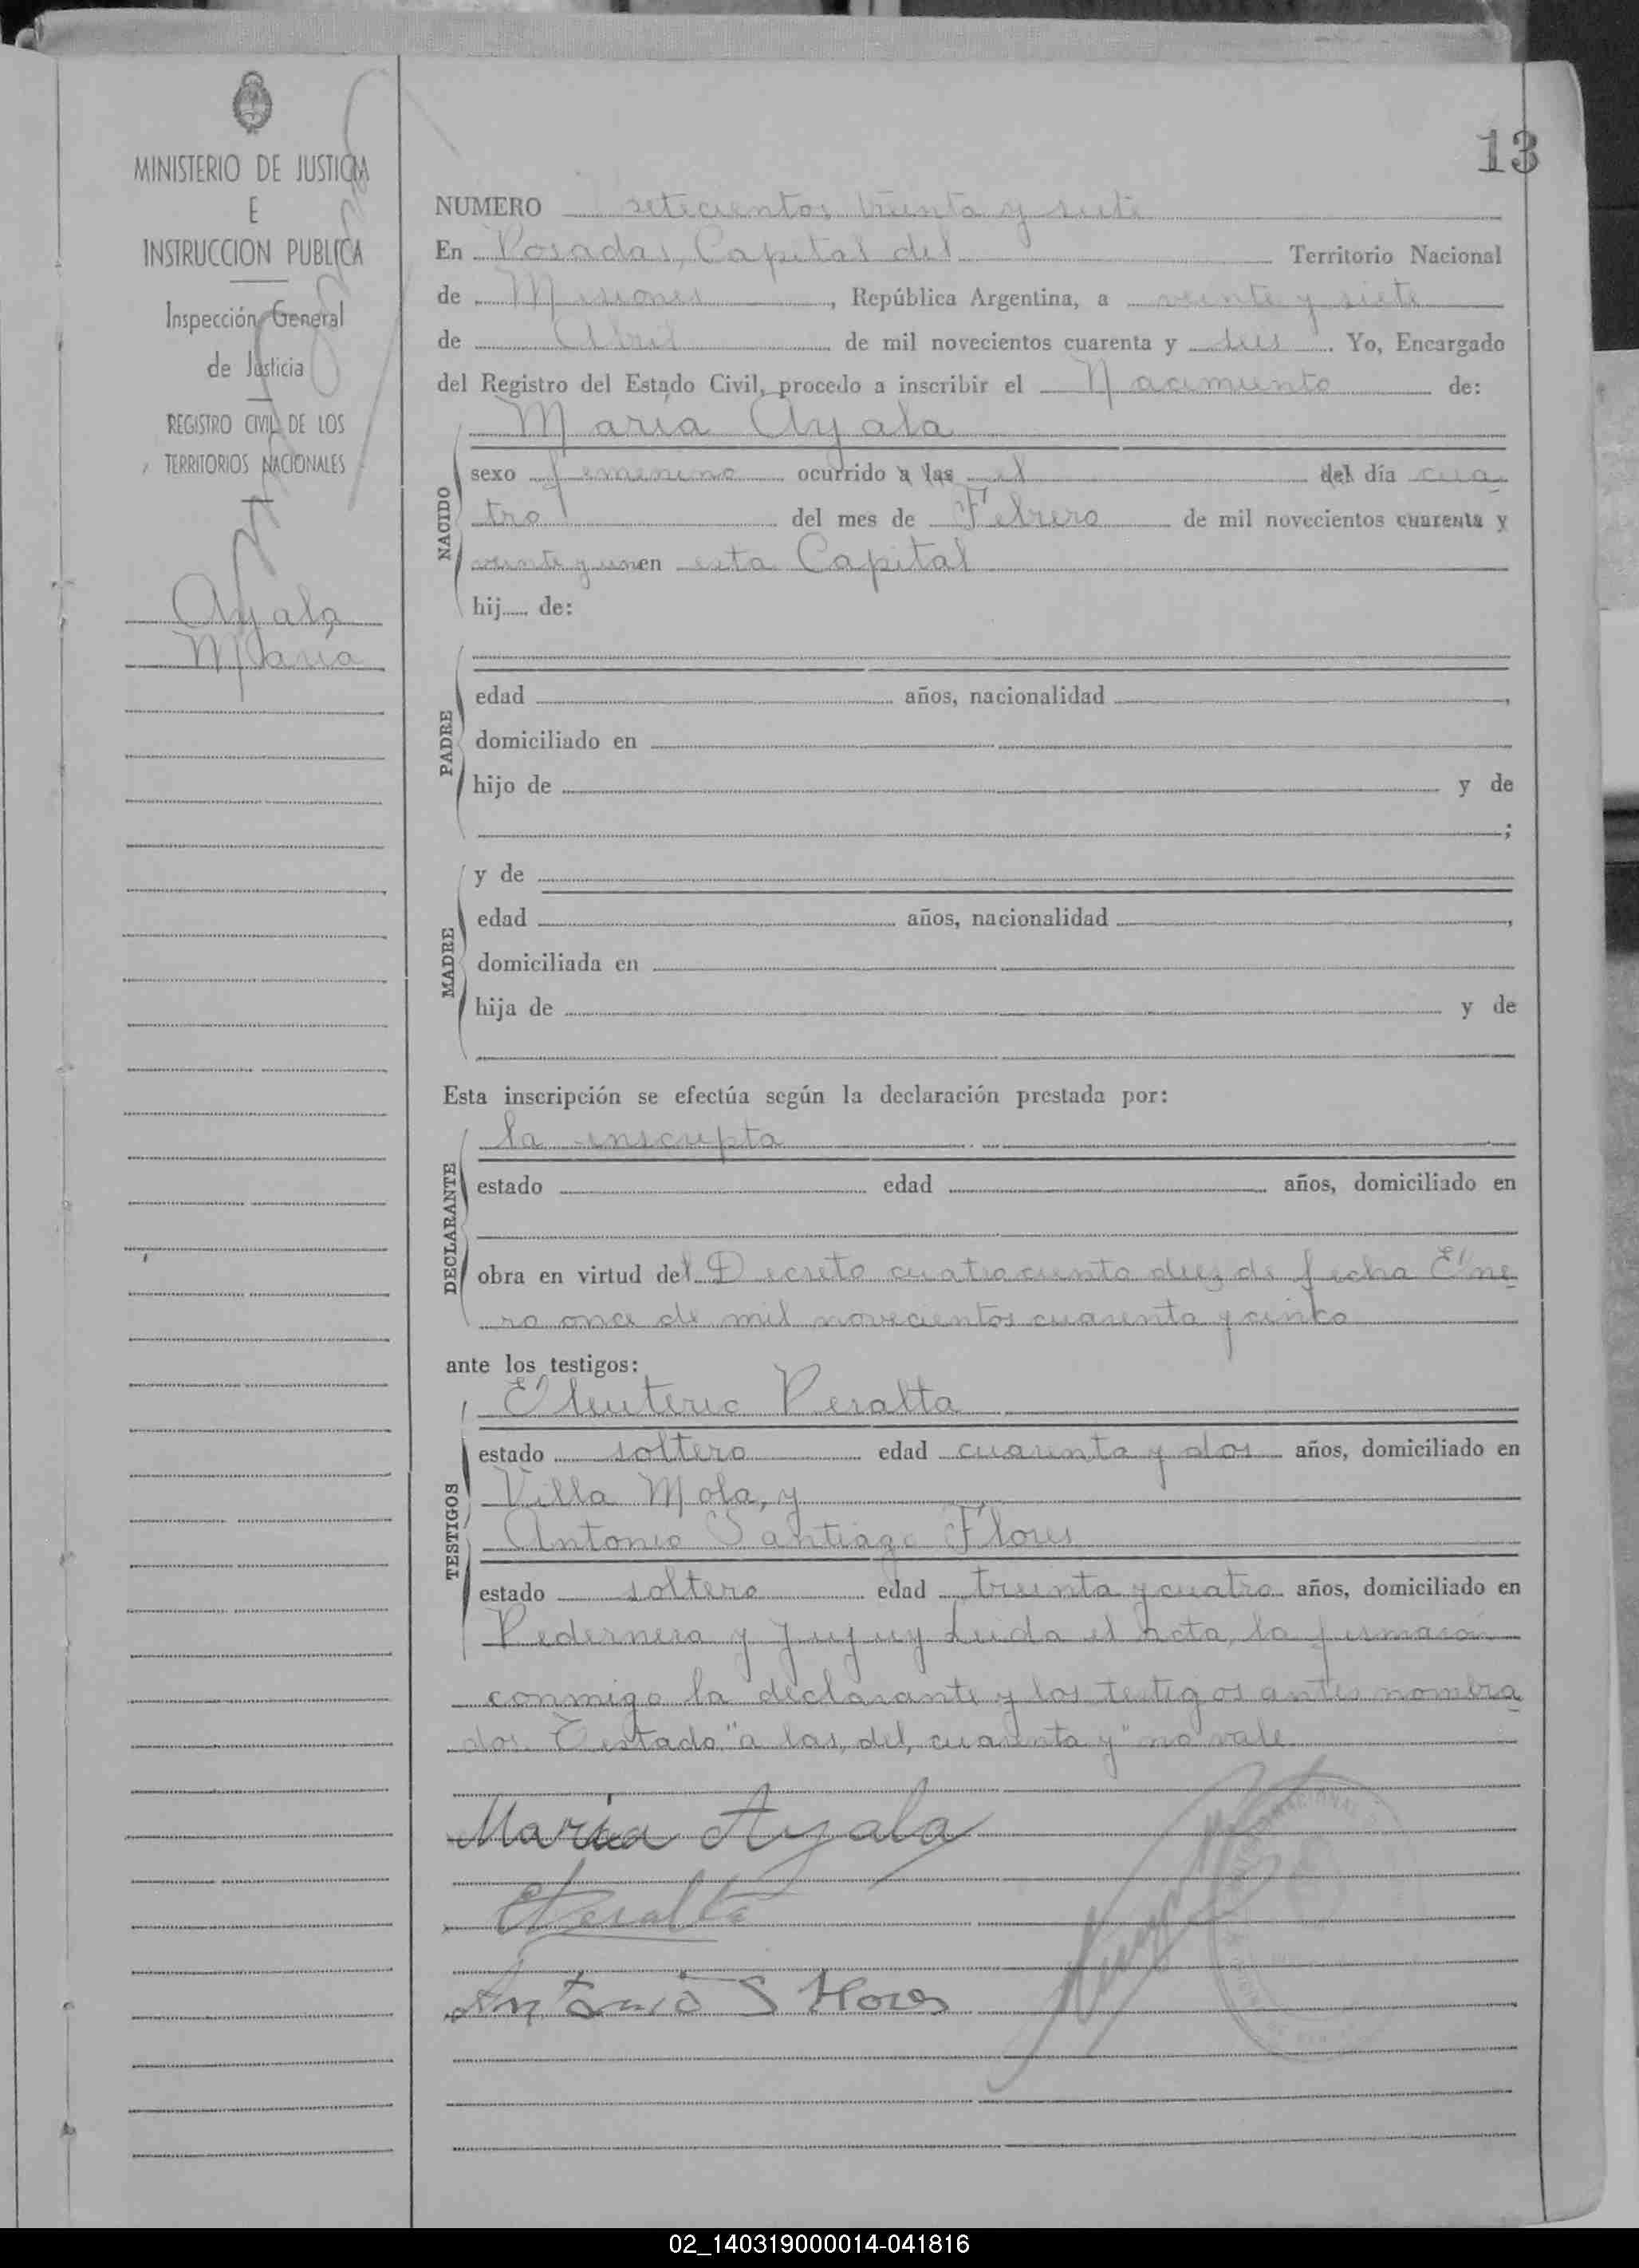 MINISTERIO DE JUSTICIA
E
INSTRUCCION PUBLICA
Inspección General
de Justicia
REGISTRO CIVIL DE LOS
TERRITORIOS NACIONALES
Ayala
Maria
13
NUMERO setecientos treinta y siete
En Posadas, Capital del Territorio Nacional
de Misiones, República Argentina, a veinte y siete
de Abril de mil novecientos cuarenta y seis. Yo, Encargado
del Registro del Estado Civil, procedo a inscribir el Nacimiento de:
Maria Ayala
NACIDO
sexo femenino ocurrido a las el del día cua-
tro del mes de Febrero de mil novecientos cuarenta y
veinte y uno en esta Capital
hij de:
PADRE
edad años, nacionalidad ,
domiciliado en
hijo de y de
;
MADRE
y de
edad años, nacionalidad ,
domiciliada en
hija de y de
Esta inscripción se efectúa según la declaración prestada por:
DECLARANTE
la inscripta
estado edad años, domiciliado en
obra en virtud del Decreto cuatrociento diez de fecha Ene-
ro once de mil novecientos cuarenta y cinco
ante los testigos:
TESTIGOS
Eleuterio Peralta
estado soltero edad cuarenta y dos años, domiciliado en
Villa Mola, y
Antonio Santiago Flores
estado soltero edad treinta y cuatro años, domiciliado en
Pedernera y Jujuy Leida el acta, la firmaron
conmigo la declarante y los testigos antes nombra-
dos. Testado "a las, del, cuarenta y" no vale
María Ayala
EPeralta
Antonio S Flores
02_140319000014-041816